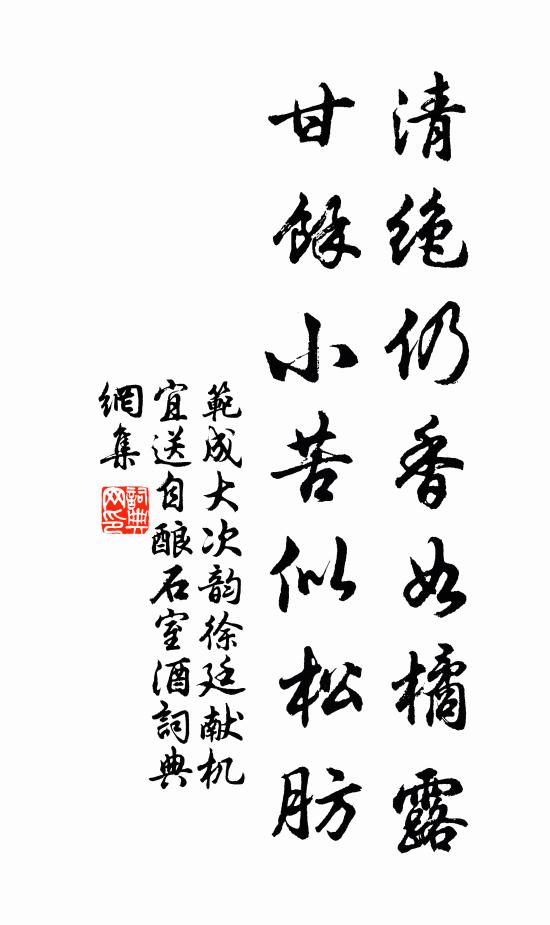 清绝仍香如橘露
甘餘小苦似松肪
範成大次韵徐廷献机
宜送自酿石室酒詞典
網集
詞典网印